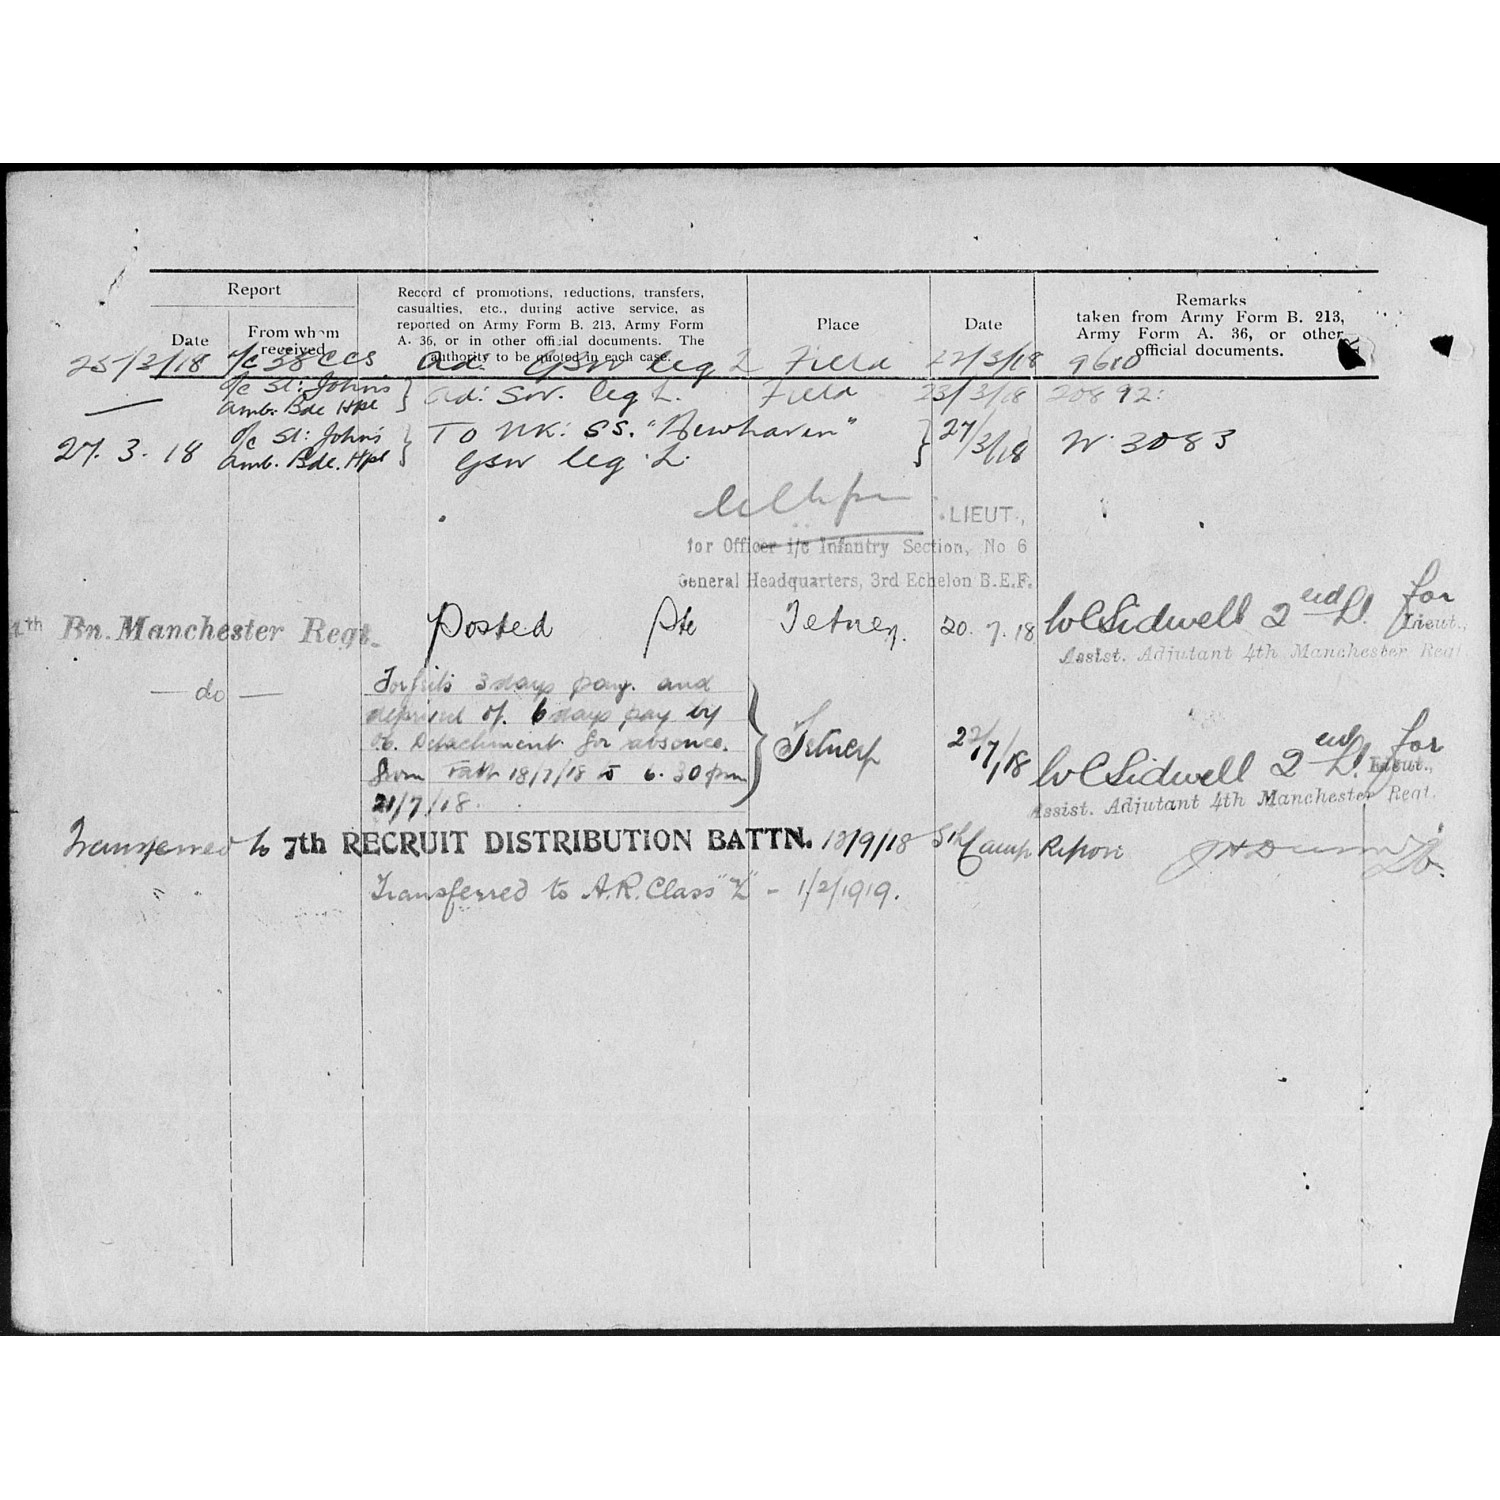 Report
Date
From whom received
Record of promotions, reductions, transfers,
casualties, etc., during active service, as
reported on Army Form B. 213, Army Form
A. 36, or in other official documents. The
authority to be quoted in each case.
Place
Date
Remarks
taken from Army Form B. 213,
Army Form A. 36, or other
official documents.
25/3/18 o/c 38 CCS ad: GSW leg L Field 22/3/18 9610
o/c St: John's
Amb. Bde Hpl } ad: SW. leg L. Field 23/3/18 20892:
27. 3. 18 o/c St: John's
Amb. Bde. Hpl } To UK: SS. "Newhaven"
GSW leg L. } 27/3/18 W. 3083
LIEUT.,
for Officer i/c Infantry Section, No 6
General Headquarters, 3rd Echelon B.E.F.
4th Bn. Manchester Regt. Posted Pte Tetney. 20. 7. 18 WC Sidwell 2nd Lt. for
Lieut.,
Assist. Adjutant 4th Manchester Regt.
— do — Forfeits 3 days pay. and
deprived of. 6 days pay by
Detachment for absence.
from 18/7/18 to 6. 30 pm
21/7/18. } 22/7/18 WC Sidwell 2nd Lt. for
Lieut.,
Assist. Adjutant 4th Manchester Regt.
Transferred to 7th RECRUIT DISTRIBUTION BATTN. 13/9/18 Camp Report
Transferred to A.R. Class "Z" - 1/2/1919.